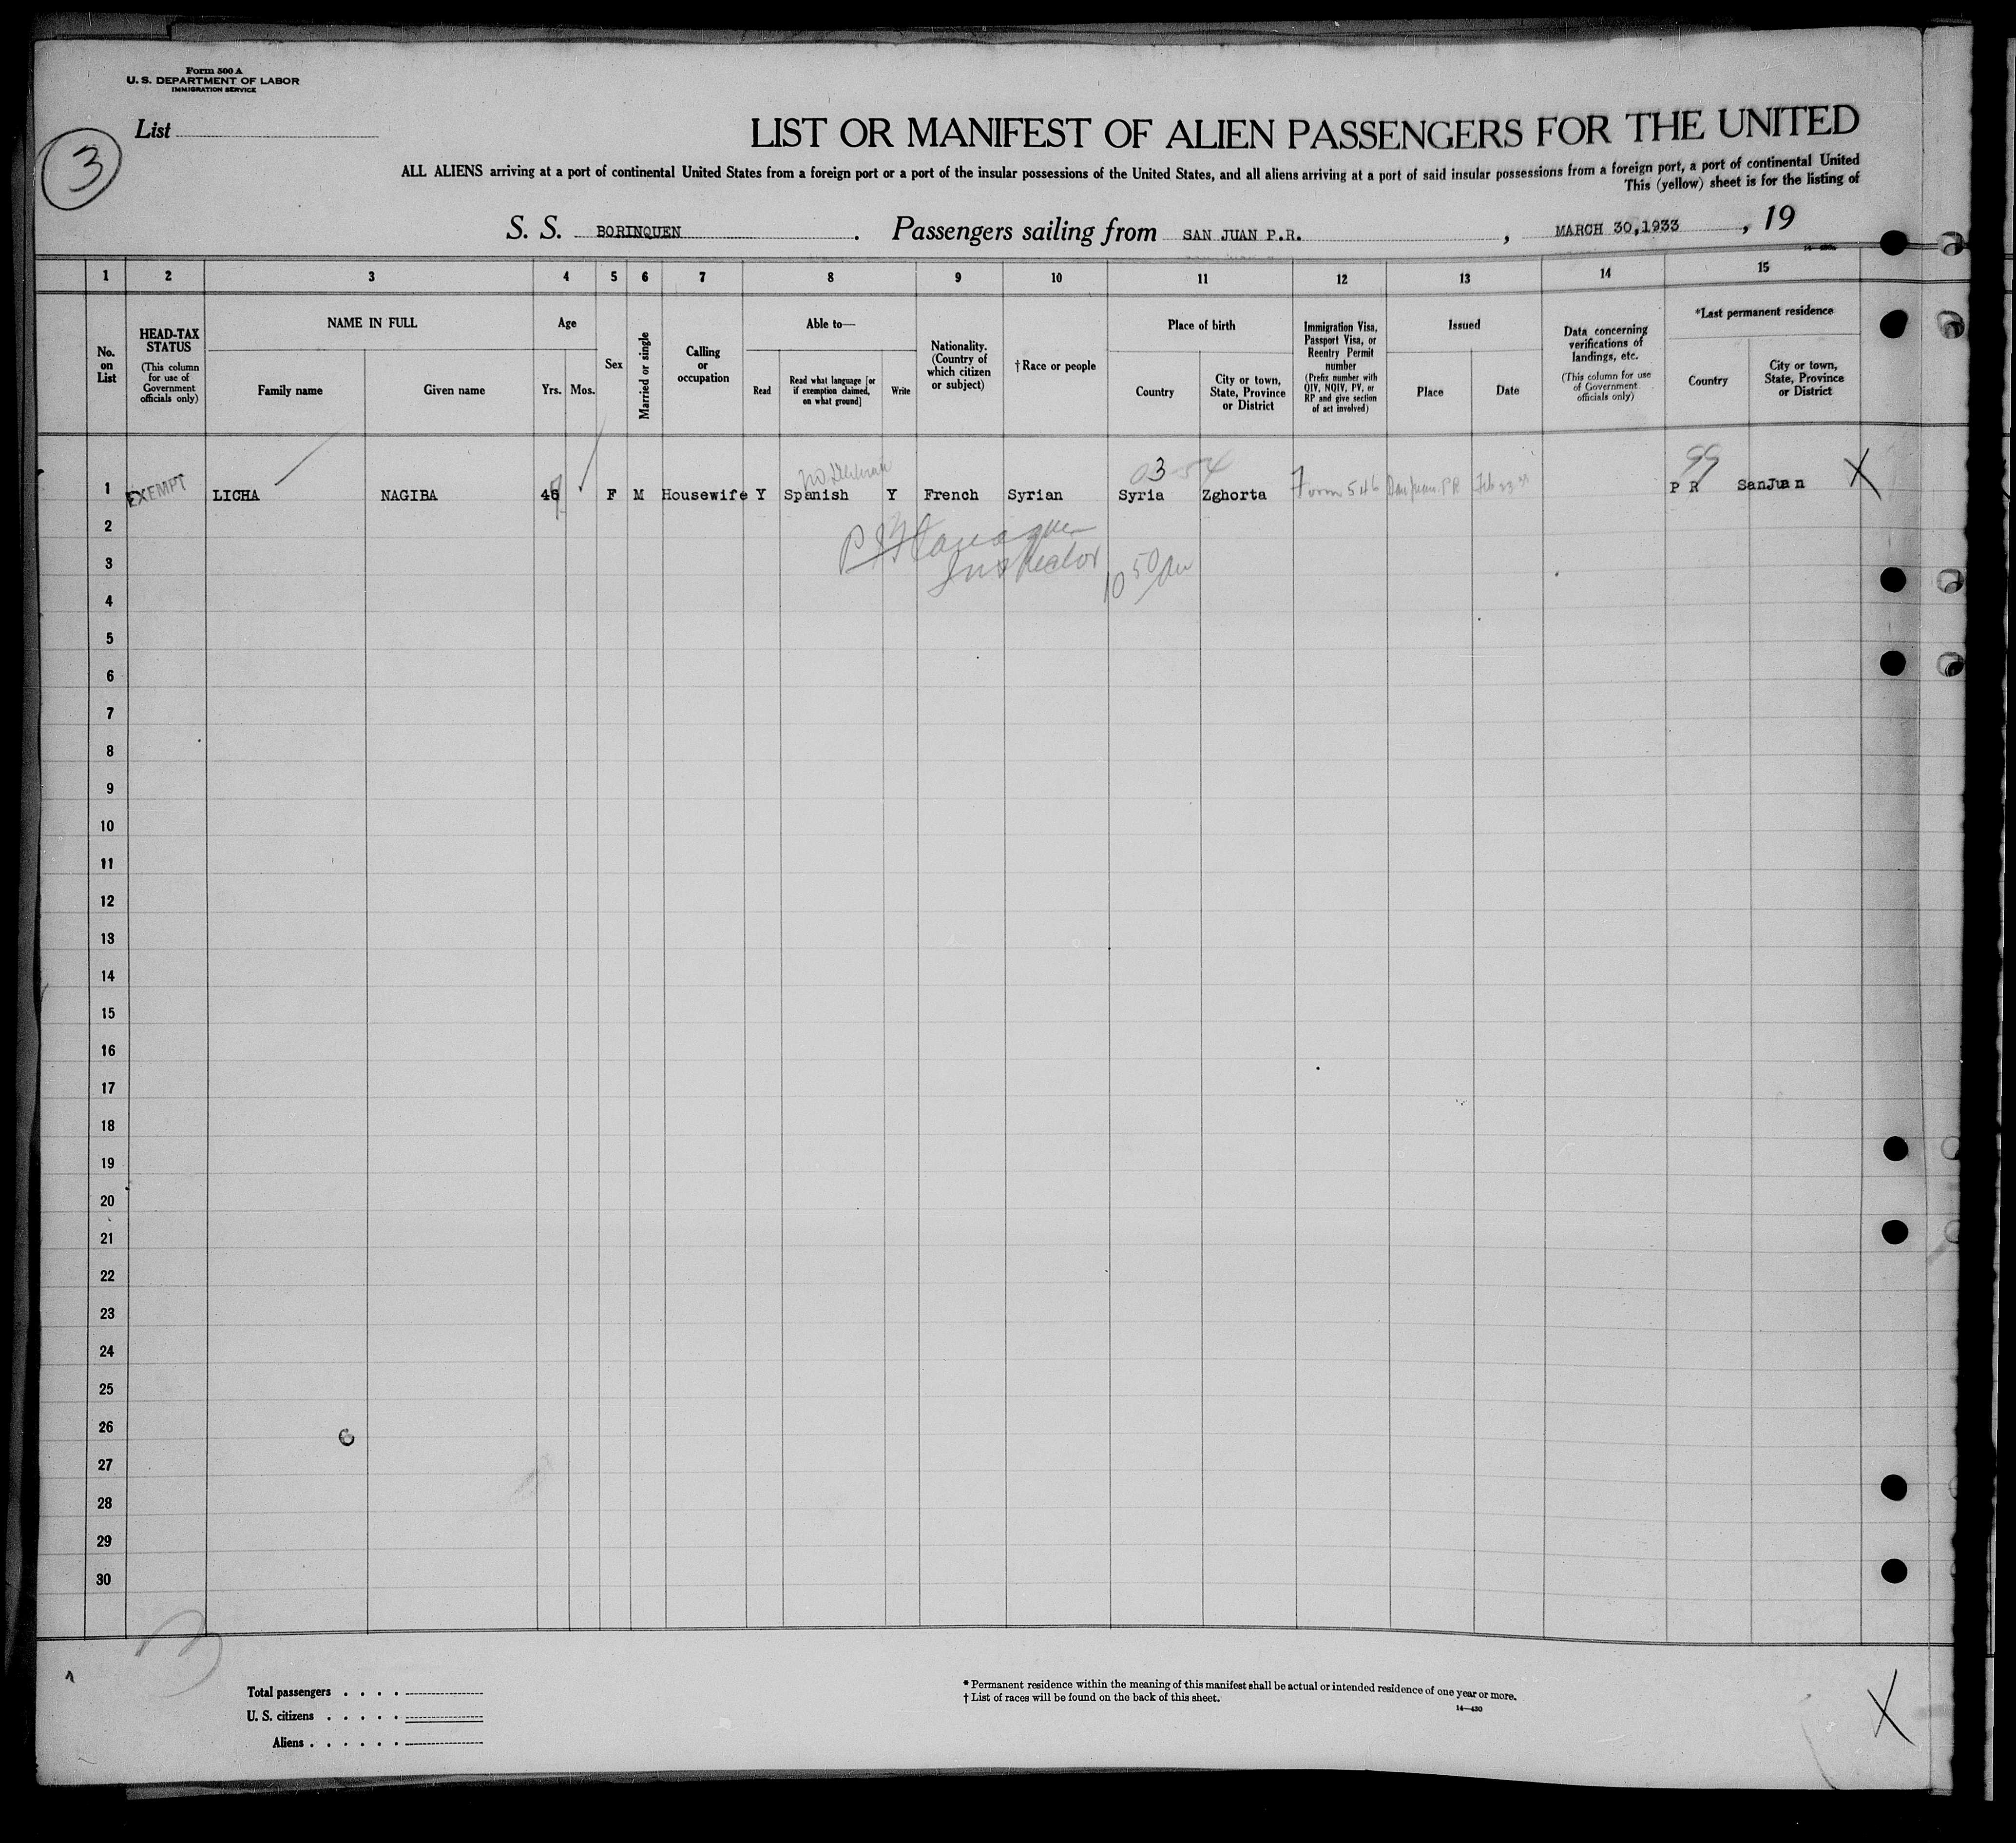 Form 500 A
U. S. DEPARTMENT OF LABOR
IMMIGRATION SERVICE
List
3
LIST OR MANIFEST OF ALIEN PASSENGERS FOR THE UNITED
ALL ALIENS arriving at a port of continental United States from a foreign port or a port of the insular possessions of the United States, and all aliens arriving at a port of said insular possessions from a foreign port, a port of continental United
This (yellow) sheet is for the listing of
S. S. BORINQUEN . Passengers sailing from SAN JUAN P.R. , MARCH 30,1933 , 19
1 2 3 4 5 6 7 8 9 10 11 12 13 14 15
No. on List
HEAD-TAX STATUS
(This column for use of Government officials only)
NAME IN FULL
Family name
Given name
Age
Yrs.
Mos.
Sex
Married or single
Calling or occupation
Able to—
Read
Read what language [or if exemption claimed, on what ground]
Write
Nationality. (Country of which citizen or subject)
† Race or people
Place of birth
Country
City or town, State, Province or District
Immigration Visa, Passport Visa, or Reentry Permit number
(Prefix number with QIV, NQIV, PV, or RP and give section of act involved)
Issued
Place
Date
Data concerning verifications of landings, etc.
(This column for use of Government officials only)
*Last permanent residence
Country
City or town, State, Province or District
03-54
99
1 EXEMPT LICHA NAGIBA 46 F M Housewife Y Spanish Y French Syrian Syria Zghorta Form 546 San Juan P R Feb 23 33 P R SanJuan X
2
Inspector
3
10 50 AM
4
5
6
7
8
9
10
11
12
13
14
15
16
17
18
19
20
21
22
23
24
25
26
27
28
29
30
3
Total passengers . . . .
U. S. citizens . . . . .
Aliens . . . . . .
* Permanent residence within the meaning of this manifest shall be actual or intended residence of one year or more.
† List of races will be found on the back of this sheet.
14—430
X